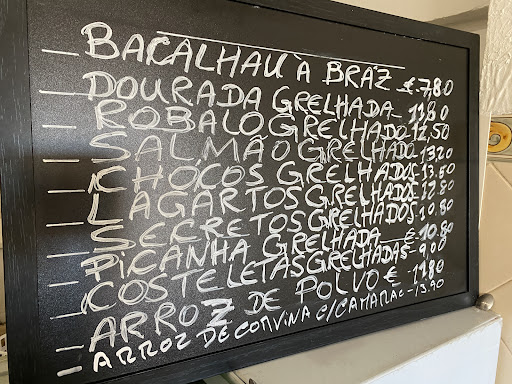 BACALHAU A BRAZ €-7,80
DOURADA GRELHADA- 11,80
ROBALO GRELHADO-12,50
SALMÃO GRELHADO-13,20
CHOCOS GRELHADOS-13.60
LAGARTOS GRELHADOS-12.80
SECRETOS GRELHADOS-10.80
PICANHA GRELHADA-€-10.80
COSTELETAS GRELHADAS-9,00
ARROZ DE POLVO €-11,80
ARROZ DE CORVINA C/CAMARAO-13.90